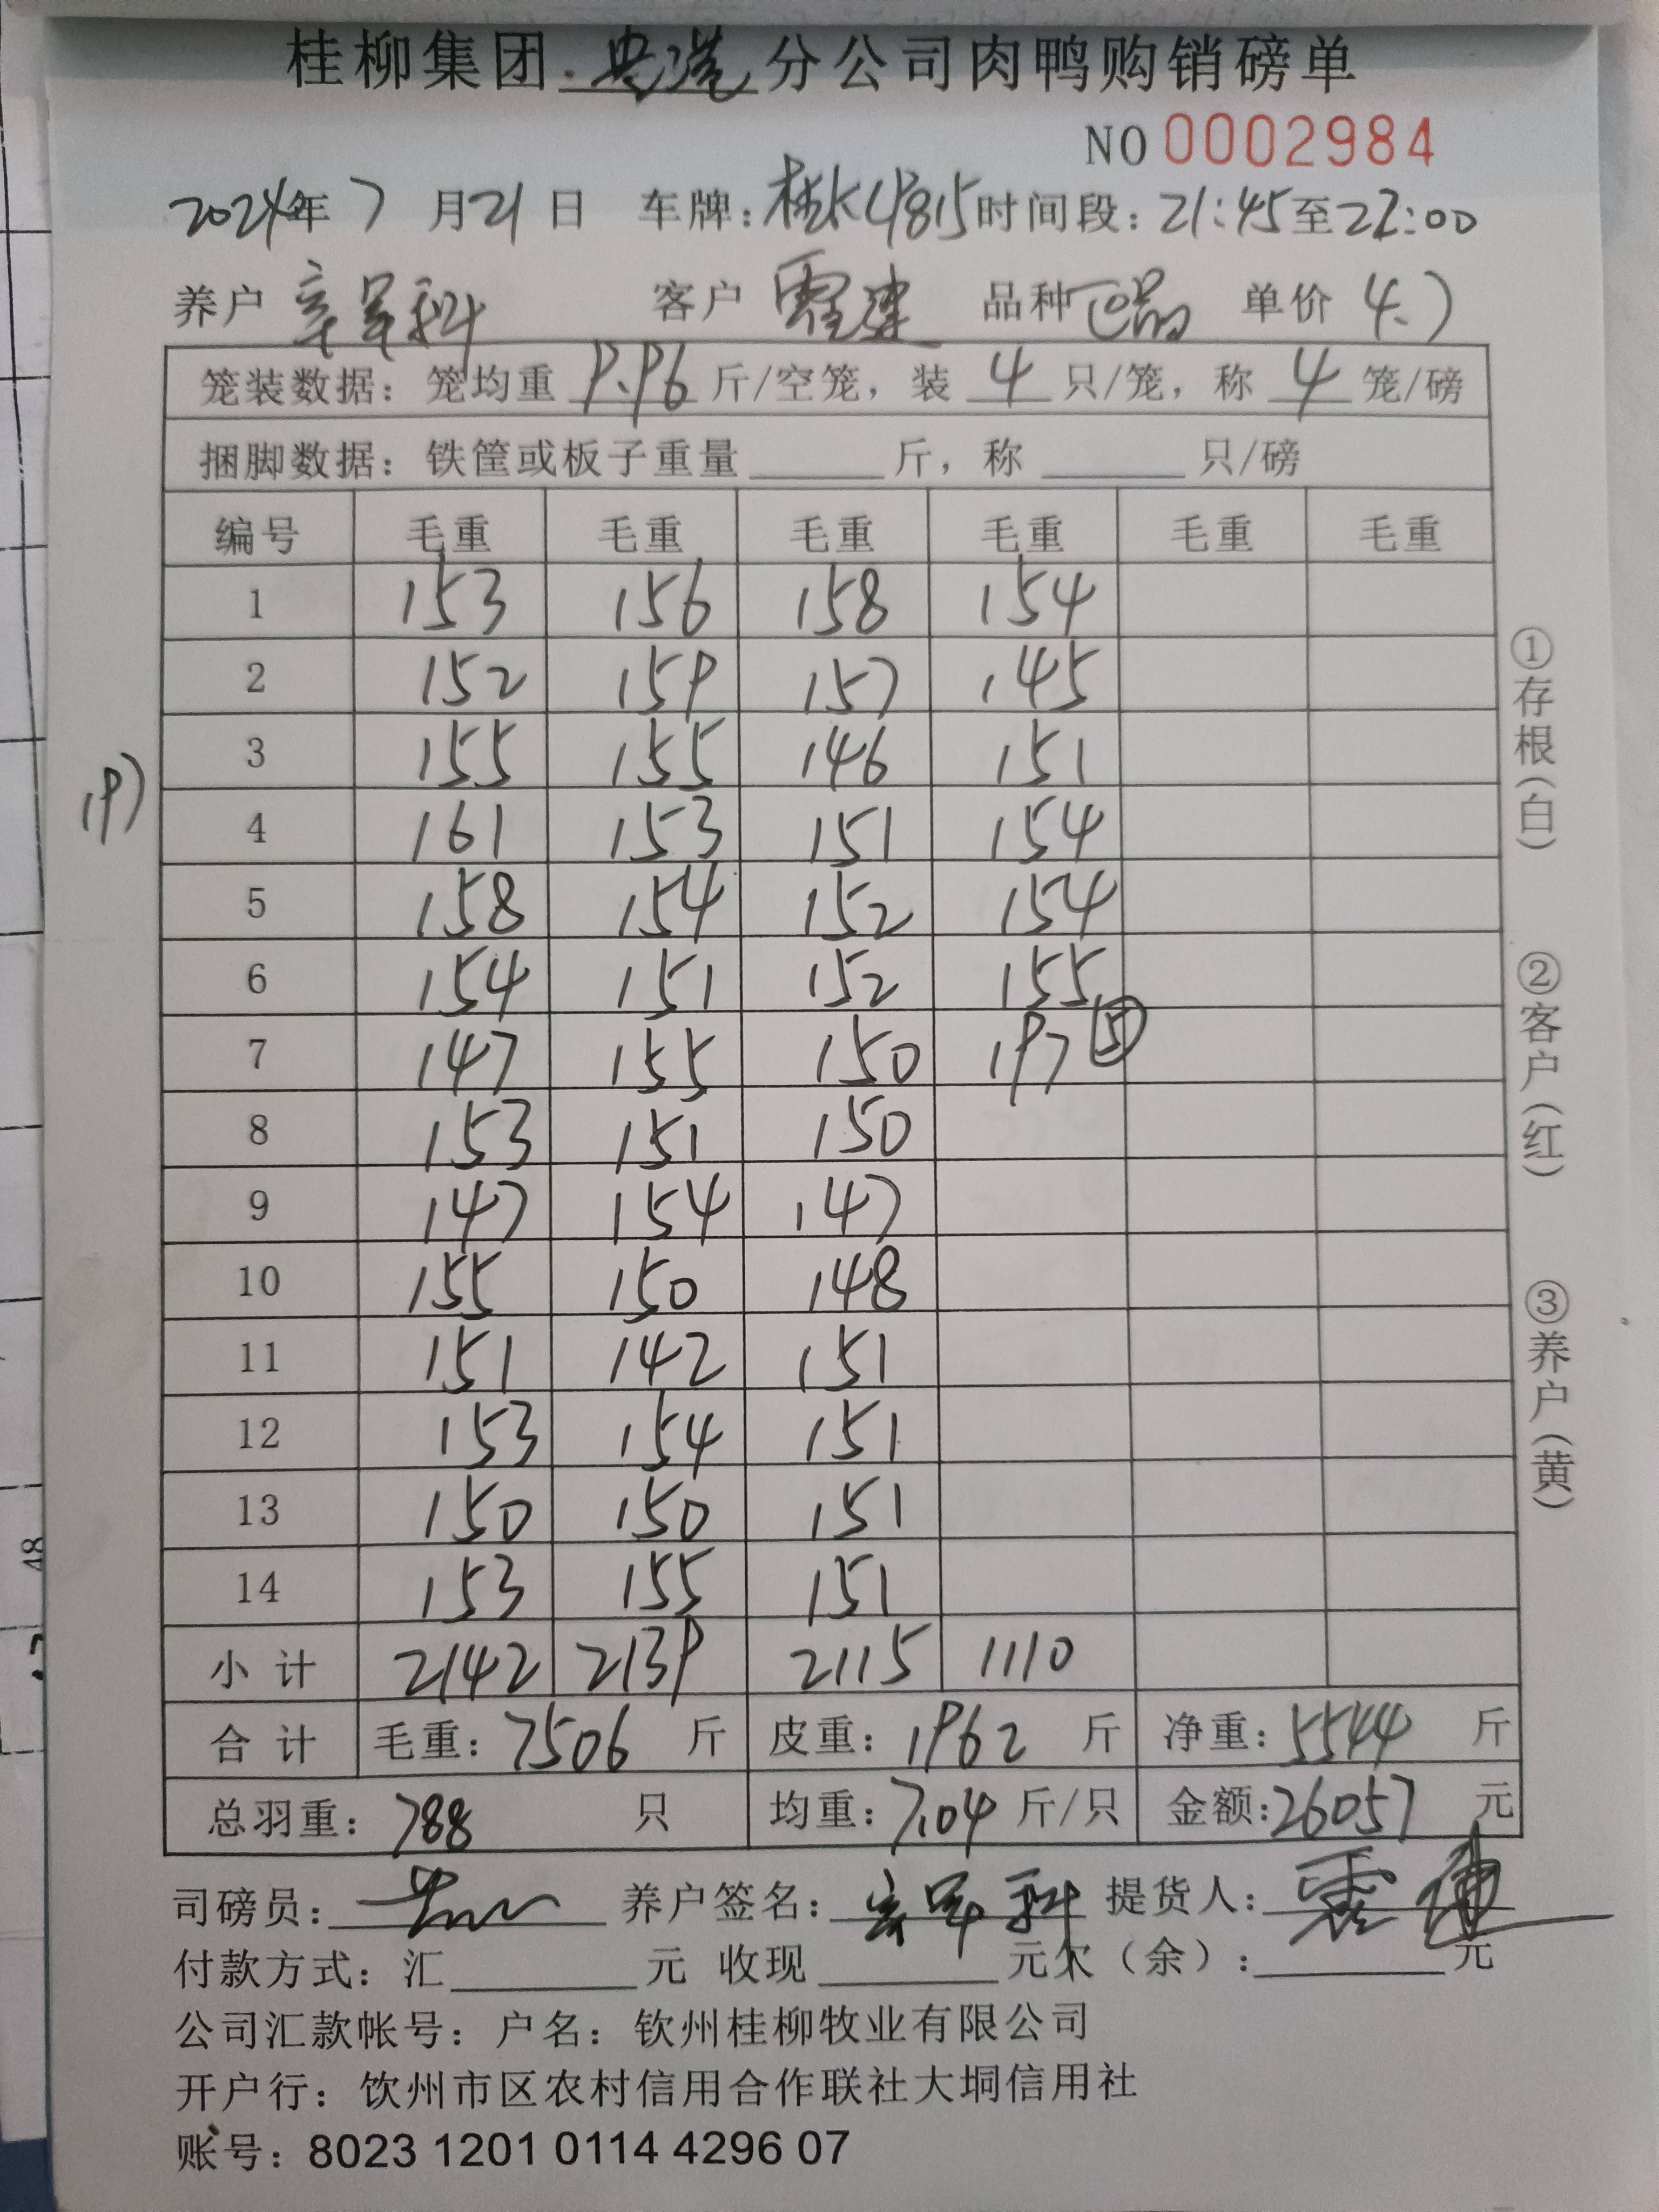 桂柳集团 分公司肉鸭购销磅单
NO 0002984
2024年 7 月 21 日 车牌：桂K4815 时间段：21:45 至 22:00
养户 客户 品种 正品 单价 4.7
笼装数据：笼均重 9.96 斤/空笼，装 4 只/笼，称 4 笼/磅
捆脚数据：铁筐或板子重量 斤，称 只/磅
编号 毛重 毛重 毛重 毛重 毛重 毛重
1 153 156 158 154
2 152 159 157 145
3 155 155 146 151
197
4 161 153 151 154
5 158 154 152 154
6 154 151 152 155
7 147 155 150 197 ⑤
8 153 151 150
9 147 154 147
10 155 150 148
11 151 142 151
12 153 154 151
13 150 150 151
14 153 155 151
小计 2142 2139 2115 1110
合计 毛重：7506 斤 皮重：1962 斤 净重：5544 斤
总羽重：788 只 均重：7.04 斤/只 金额：26057 元
司磅员： 养户签名： 提货人：
付款方式：汇 元 收现 元欠（余）： 元
公司汇款帐号：户名：钦州桂柳牧业有限公司
开户行：饮州市区农村信用合作联社大垌信用社
账号：8023 1201 0114 4296 07
①存根（白）
②客户（红）
③养户（黄）
48